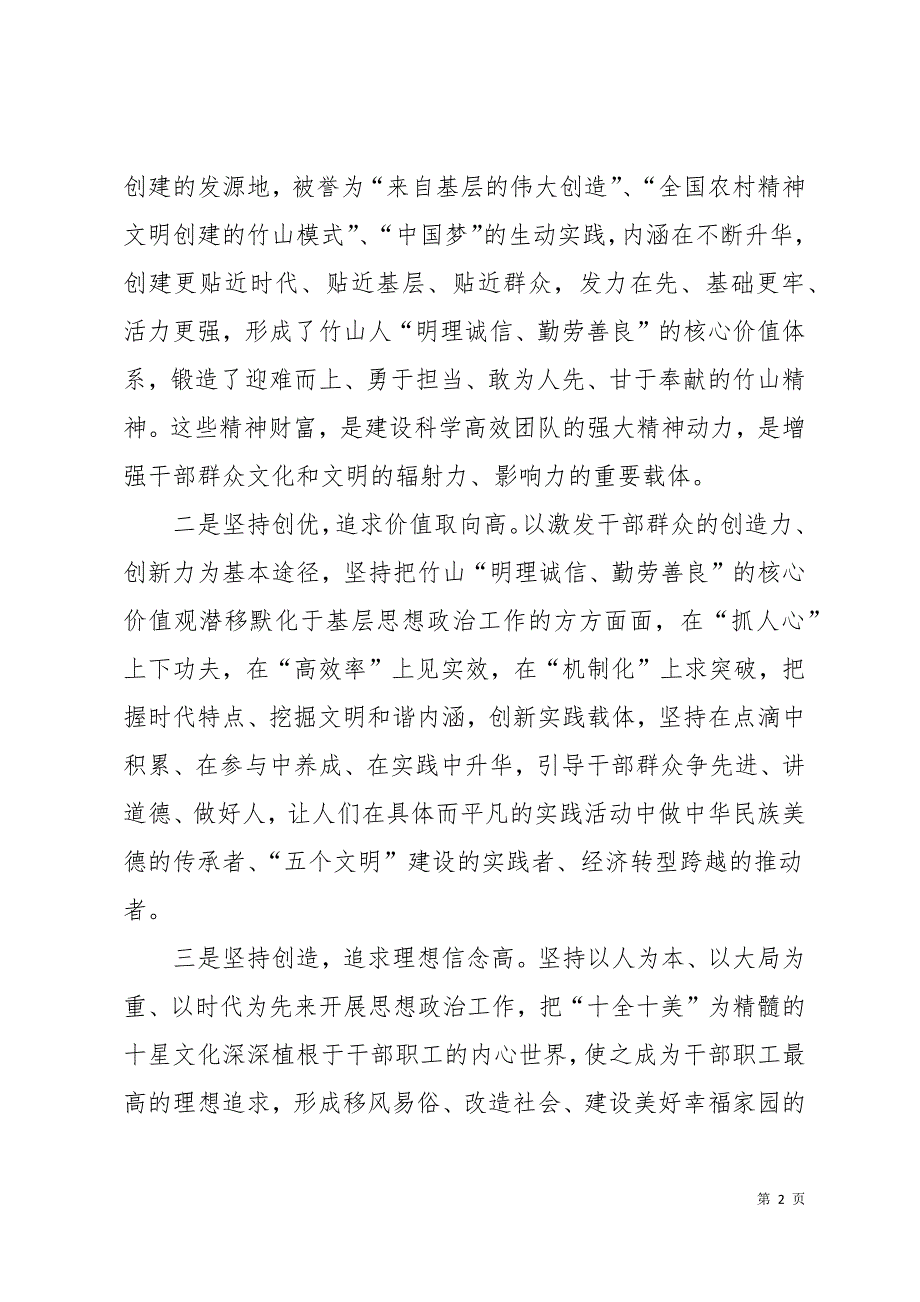 创建的发源地，被誉为“来自基层的伟大创造”、“全国农村精神
文明创建的竹山模式”、“中国梦”的生动实践，内涵在不断升华，
创建更贴近时代、贴近基层、贴近群众，发力在先、基础更牢、
活力更强，形成了竹山人“明理诚信、勤劳善良”的核心价值体
系，锻造了迎难而上、勇于担当、敢为人先、甘于奉献的竹山精
神。这些精神财富，是建设科学高效团队的强大精神动力，是增
强干部群众文化和文明的辐射力、影响力的重要载体。
二是坚持创优，追求价值取向高。以激发干部群众的创造力、
创新力为基本途径，坚持把竹山“明理诚信、勤劳善良”的核心
价值观潜移默化于基层思想政治工作的方方面面，在“抓人心”
上下功夫，在“高效率”上见实效，在“机制化”上求突破，把
握时代特点、挖掘文明和谐内涵，创新实践载体，坚持在点滴中
积累、在参与中养成、在实践中升华，引导干部群众争先进、讲
道德、做好人，让人们在具体而平凡的实践活动中做中华民族美
德的传承者、“五个文明”建设的实践者、经济转型跨越的推动
者。
三是坚持创造，追求理想信念高。坚持以人为本、以大局为
重、以时代为先来开展思想政治工作，把“十全十美”为精髓的
十星文化深深植根于干部职工的内心世界，使之成为干部职工最
高的理想追求，形成移风易俗、改造社会、建设美好幸福家园的
第 2 页